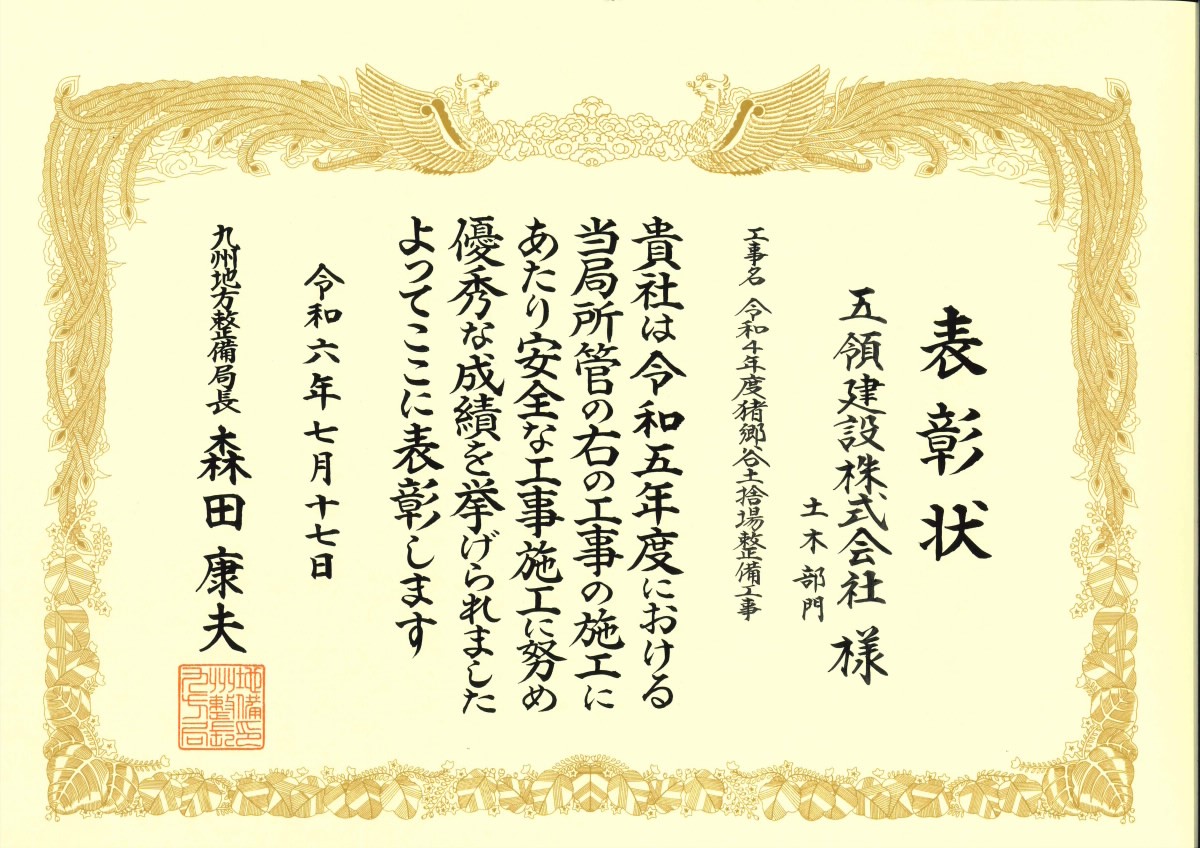 表彰状
五領建設株式会社 様
土木部門
工事名 令和4年度猪郷谷土捨場整備工事
貴社は令和五年度における
当局所管の右の工事の施工に
あたり安全な工事施工に努め
優秀な成績を挙げられました
よってここに表彰します
令和六年七月十七日
九州地方整備局長 森田康夫